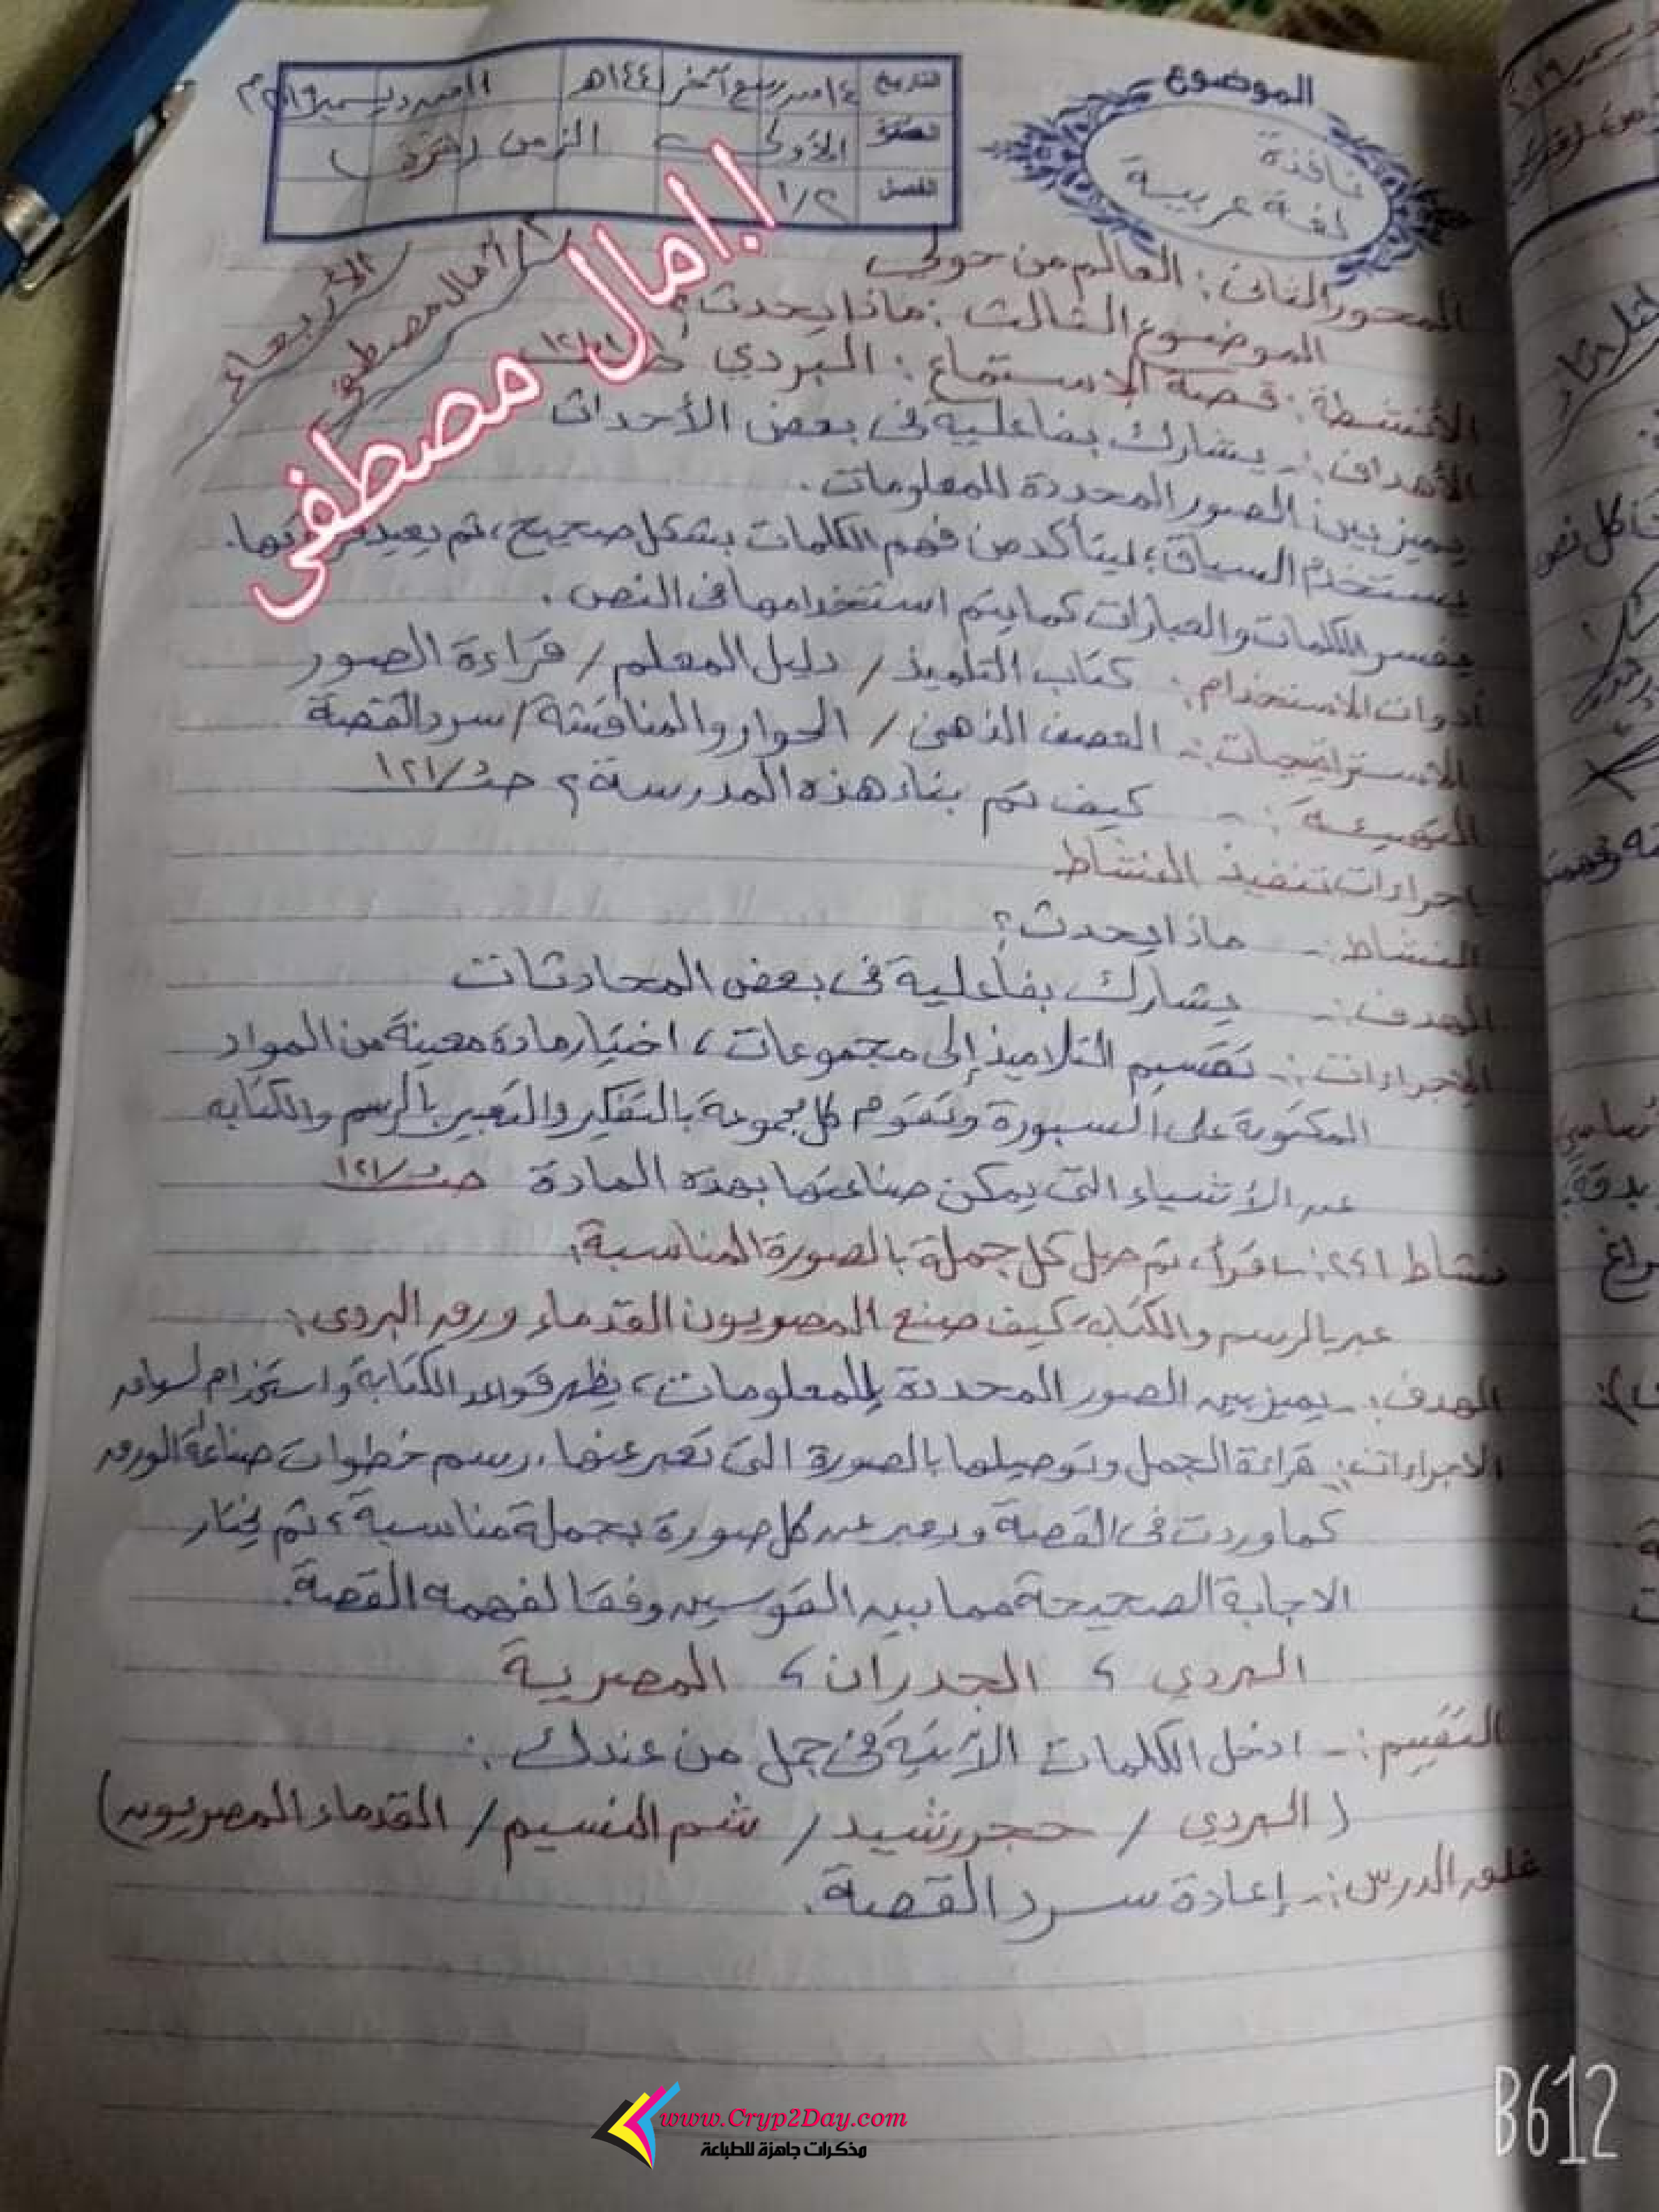 الموضوع
نافذة
لغة عربية
التاريخ ١٤ من ربيع آخر ١٤٤١هـ ١١ من ديسمبر ٢٠١٩م
الأولى الزمن
الفصل ١/٢
الأربعاء
أ/ أمال مصطفى
أ.امال مصطفى
المحور الثانى: العالم من حولى
الموضوع الثالث: ماذا يحدث؟
الأنشطة: قصة الإستماع: البردي
الأهداف:- يشارك بفاعلية فى بعض الأحداث
يميز بين الصور المحددة للمعلومات.
يستخدم السياق؛ ليتأكد من فهم الكلمات بشكل صحيح، ثم يعيد قراءتها.
يفسر الكلمات والعبارات كما يتم استخدامها فى النص.
أدوات الاستخدام: كتاب التلميذ/ دليل المعلم/ قراءة الصور
الاستراتيجيات:- العصف الذهنى/ الحوار والمناقشة/ سرد القصة
التهيئة:- كيف تم بناء هذه المدرسة؟ صـ/١٢١
اجراءات تنفيذ النشاط
النشاط:- ماذا يحدث؟
الهدف:- يشارك بفاعلية فى بعض المحادثات
الإجراءات:- تقسيم التلاميذ إلى مجموعات، اختيار مادة معينة من المواد
المكتوبة على السبورة وتقوم كل مجموعة بالتفكير والتعبير بالرسم والكتابة
عن الأشياء التى يمكن صناعتها بهذه المادة صـ/١٢١
نشاط ٢٤١:- اقرأ، ثم صل كل جملة بالصورة المناسبة:
عبر بالرسم والكتابة كيف صنع المصريون القدماء ورق البردى:
الهدف:- يميز بين الصور المحددة للمعلومات، يظهر قواعد الكتابة واستخدام
الاجراءات:- قراءة الجمل وتوصيلها بالصورة التى تعبر عنها. رسم خطوات صناعة الورق
كما وردت فى القصة ويعبر عن كل صورة بجملة مناسبة، ثم يختار
الاجابة الصحيحة مما بين القوسين وفقا لفهمه القصة.
البردي ، الجدران ، المصرية
التقييم:- ادخل الكلمات الآتية فى جمل من عندك:
( البردي / حجر رشيد / شم النسيم / القدماء المصريون)
غلق الدرس:- إعادة سرد القصة.
www.Cryp2Day.com
مذكرات جاهزة للطباعة
B612